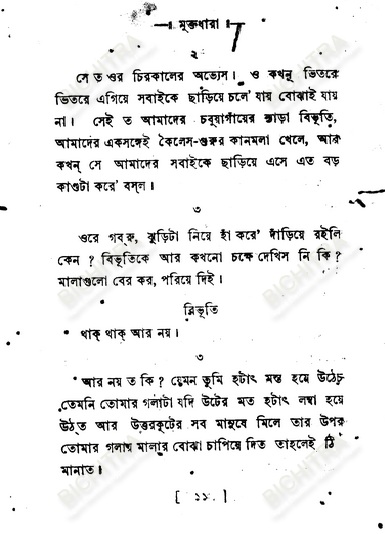 ॥ মুক্তধারা ॥
২
সে ত ওর চিরকালের অভ্যেস। ও কখন্ ভিতরে
ভিতরে এগিয়ে সবাইকে ছাড়িয়ে চলে' যায় বোঝাই যায়
না। সেই ত আমাদের চবুয়াগাঁয়ের ন্যাড়া বিভূতি,
আমাদের একসঙ্গেই কৈলেস-গুরুর কানমলা খেলে, আর
কখন্ সে আমাদের সবাইকে ছাড়িয়ে এসে এত বড়
কাণ্ডটা করে' বস্‌ল।
৩
ওরে গব্‌রু, ঝুড়িটা নিয়ে হাঁ করে' দাঁড়িয়ে রইলি
কেন? বিভূতিকে আর কখনো চক্ষে দেখিস নি কি?
মালাগুলো বের কর, পরিয়ে দিই।
বিভূতি
থাক্ থাক্ আর নয়।
৩
আর নয় ত কি? যেমন তুমি হটাৎ মস্ত হয়ে উঠেচ
তেমনি তোমার গলাটা যদি উটের মত হটাৎ লম্বা হয়ে
উঠ্‌ত আর উত্তরকূটের সব মানুষে মিলে তার উপর
তোমার গলায় মালার বোঝা চাপিয়ে দিত তাহলেই ঠি
মানাত।
[ ১১ ]
BICHITRA